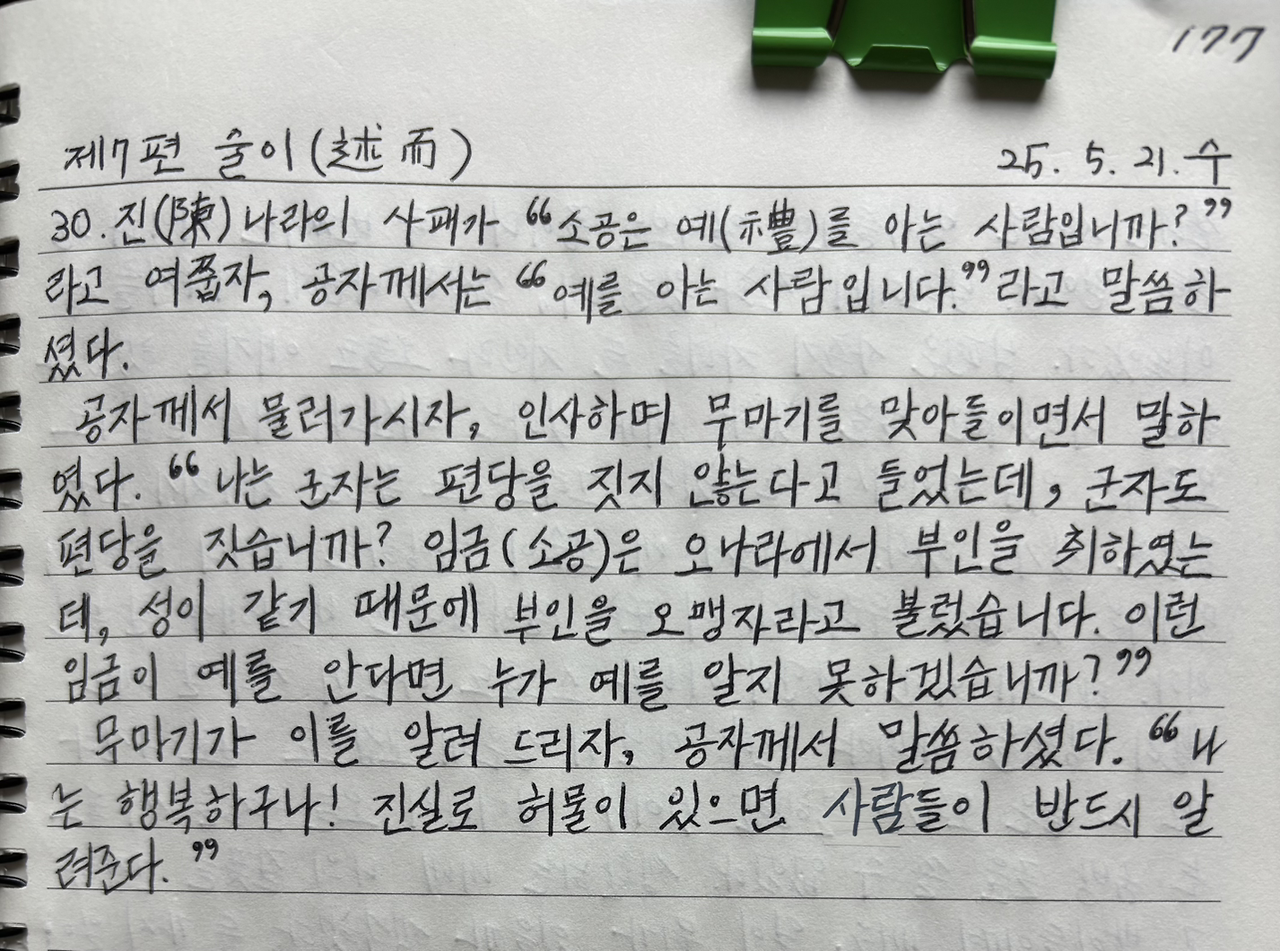 177
제7편 술이(述而) 25. 5. 21. 수
30. 진(陳)나라의 사패가 “소공은 예(禮)를 아는 사람입니까?”
라고 여쭙자, 공자께서는 “예를 아는 사람입니다.”라고 말씀하
셨다.
공자께서 물러가시자, 인사하며 무마기를 맞아들이면서 말하
였다. “나는 군자는 편당을 짓지 않는다고 들었는데, 군자도
편당을 짓습니까? 임금(소공)은 오나라에서 부인을 취하였는
데, 성이 같기 때문에 부인을 오맹자라고 불렀습니다. 이런
임금이 예를 안다면 누가 예를 알지 못하겠습니까?”
무마기가 이를 알려 드리자, 공자께서 말씀하셨다. “나
는 행복하구나! 진실로 허물이 있으면 사람들이 반드시 알
려준다.”